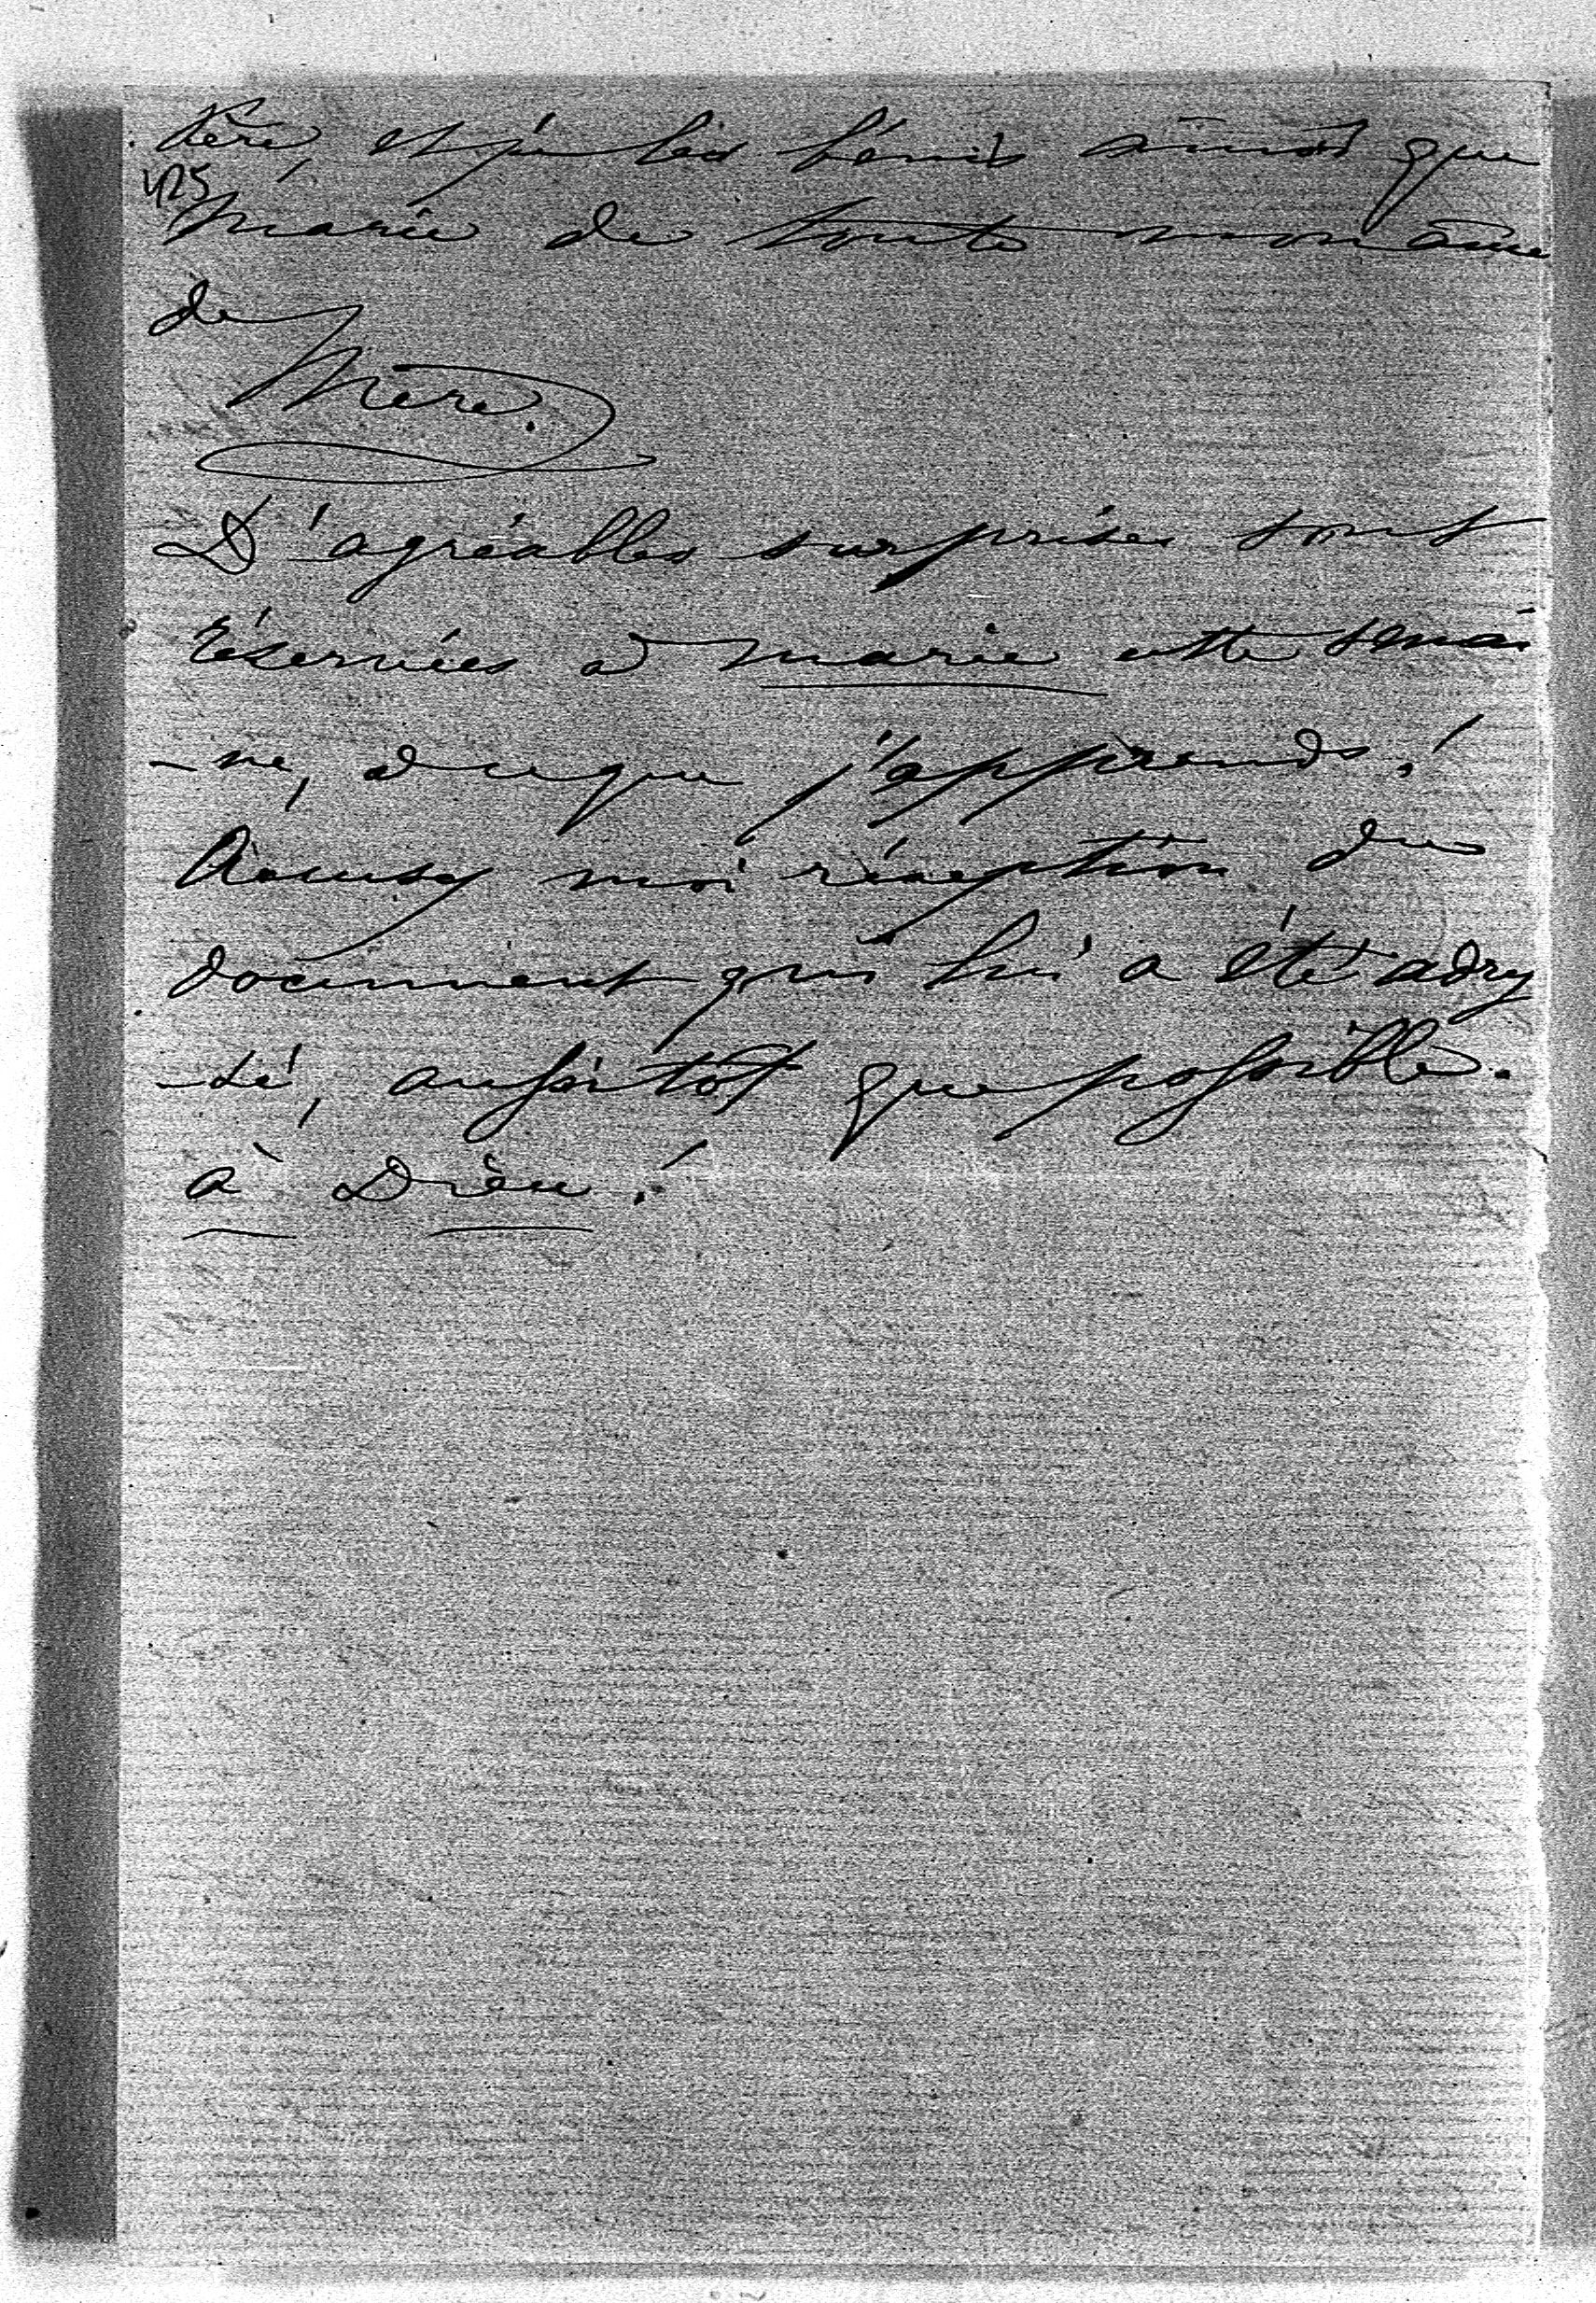 Père, et je les bénis ainsi que
425
Marie de toute mon âme
de
Mère.
D'agréables surprises sont
réservées à Marie cette semai
-ne, à ce que j'apprends !
Accusez moi réception du
document qui lui a été adres
-sé, aussitôt que possible.
à Dieu !